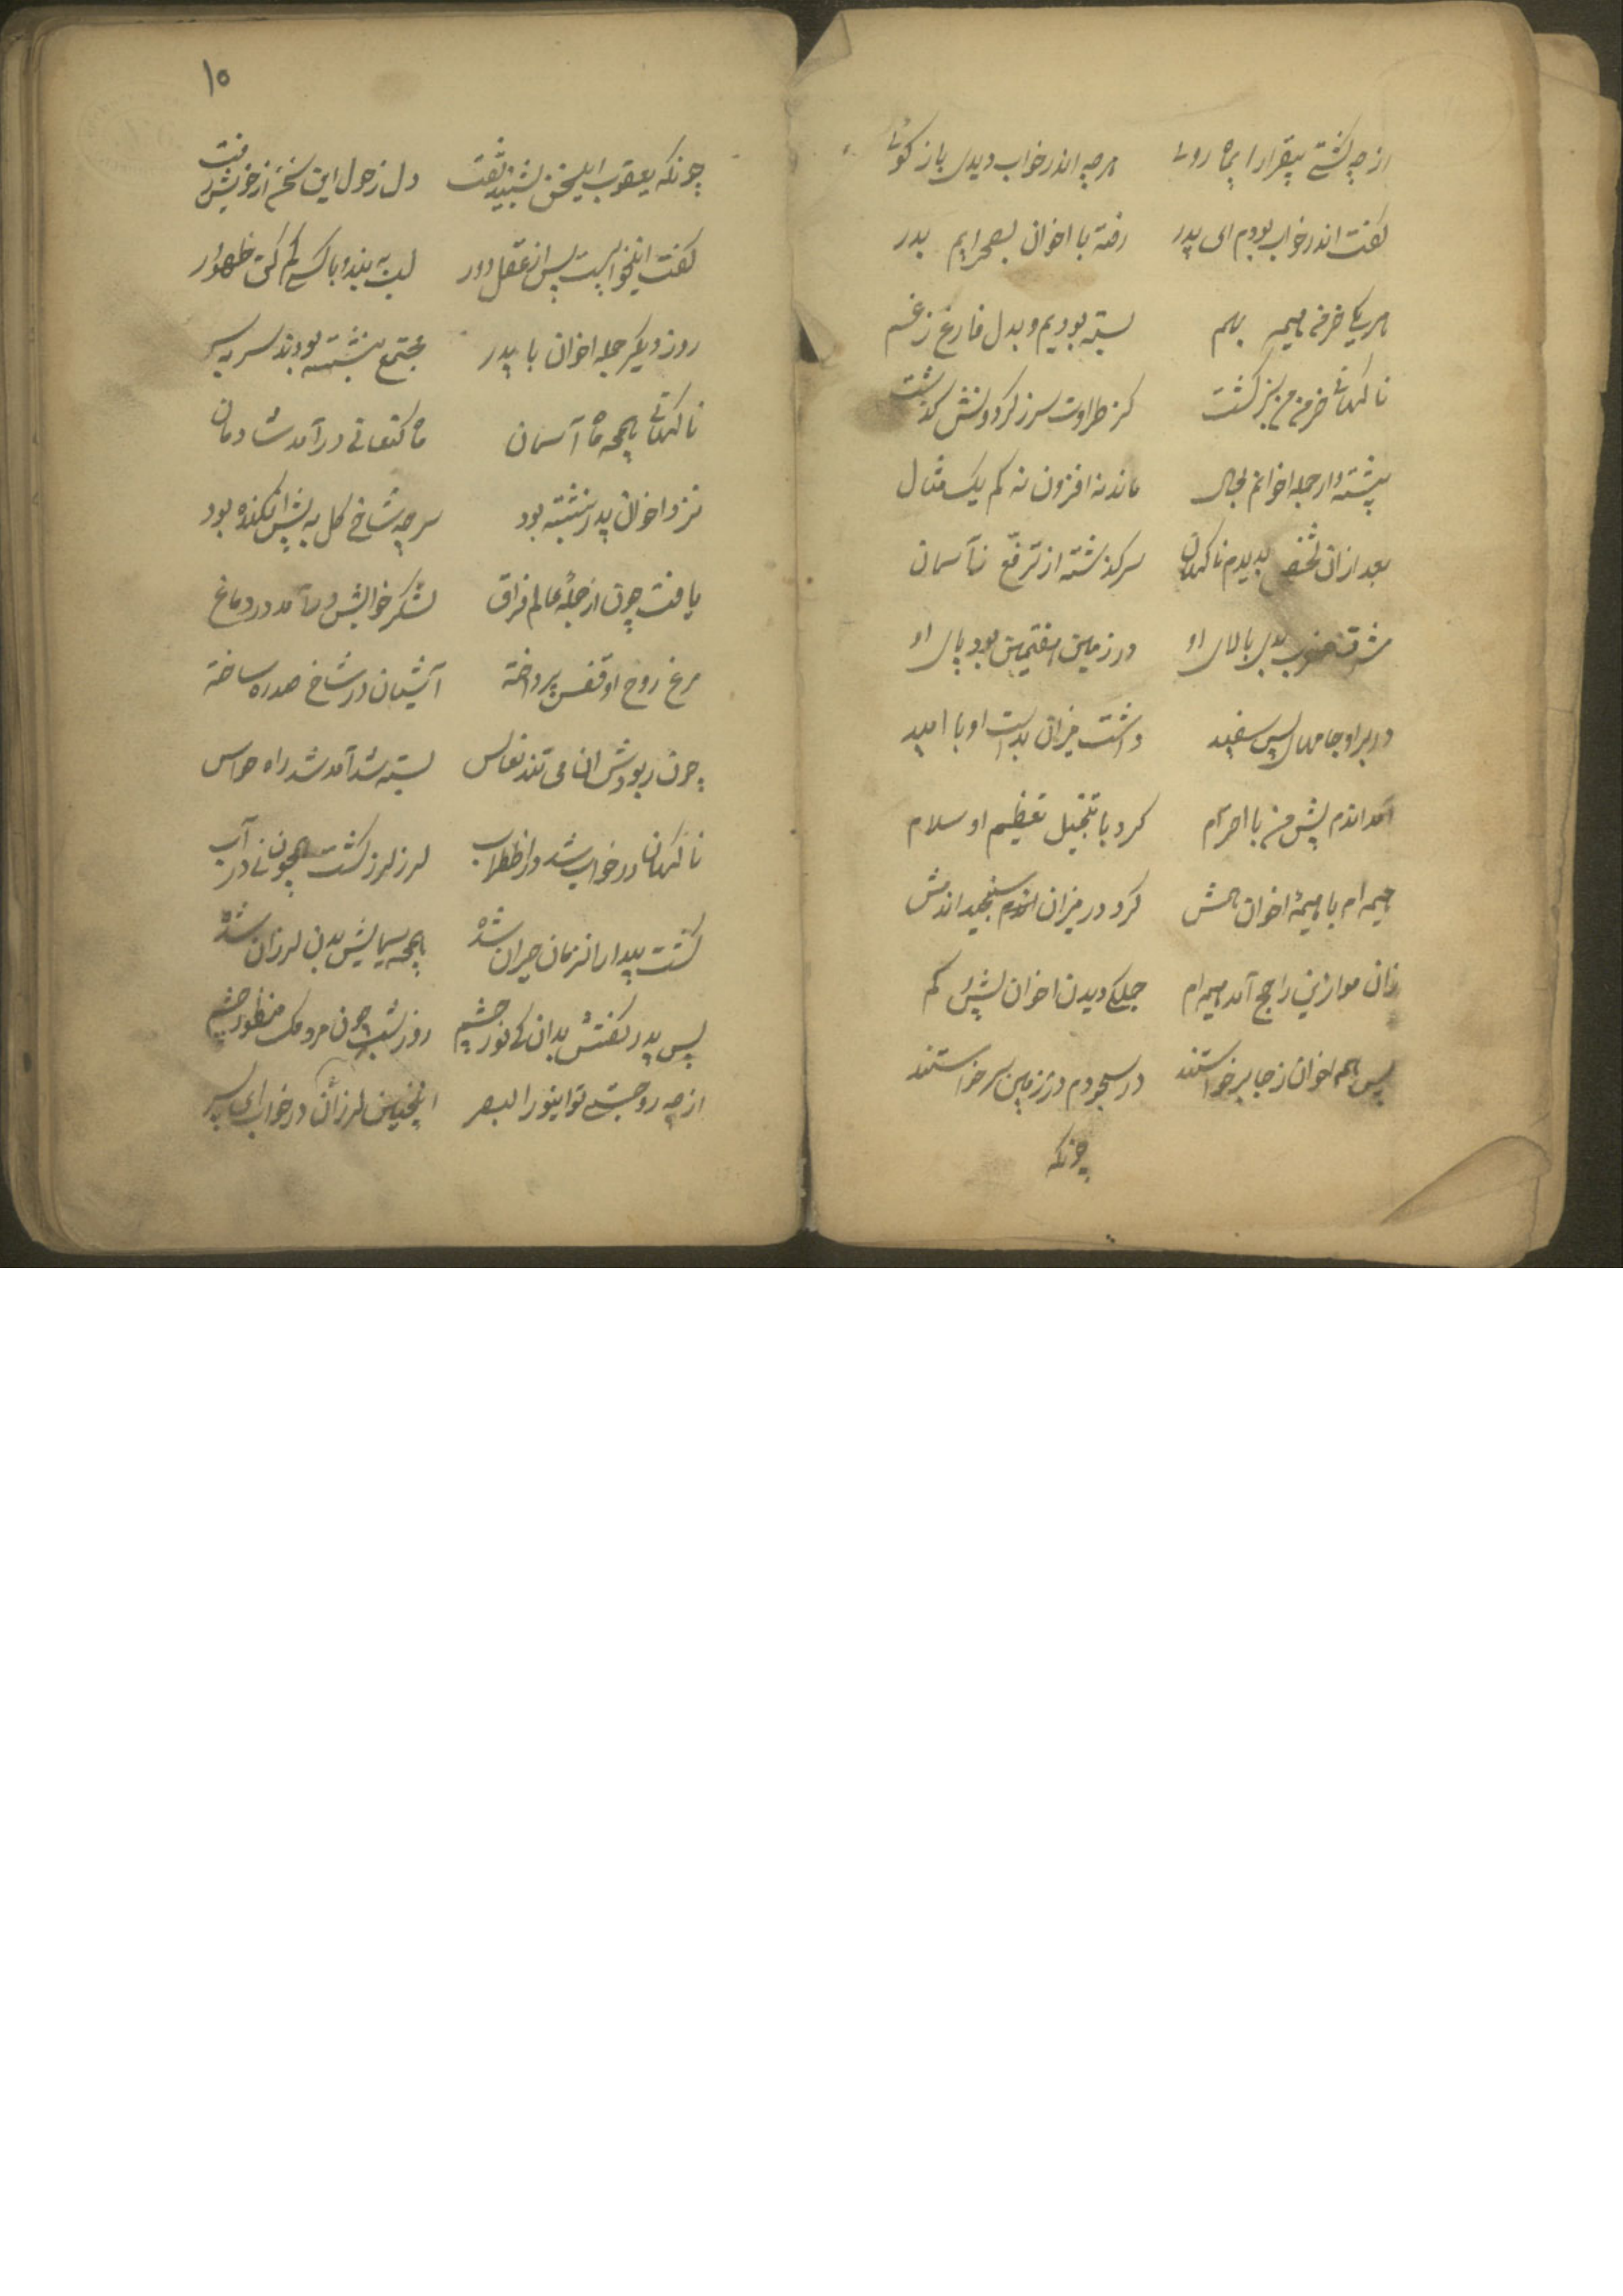 از چه گشتے بیقرار ایماه روئے هرچه اندر خواب دیدی باز گوئے
گفت اندر خواب بودم ای پدر رفته با اخوان بصحرایم بدر
هر یکے خرمن هیمه بهم بسته بودیم و بدل فارغ ز غم
ناگهانے خرمن من سبز گشت کز طراوت سرز گردونش گذشت
پشته وار جمله اخوانم بحال مانده نه افزون نه کم یک مثال
بعد ازان شخصے بدیدم ناگهان سر گذشته از ترفع ز آسمان
مشرق مغرب بدی بالای او در زمین هفتمین بود پای او
در بر او جامهای بس سفید داشت میزان بدست او با امید
آمد اندم پیش من با احترام کرد با تبجیل تعظیم او سلام
هیمه ام با هیمهٔ اخوان کرد در میزان سنجید اندمش
زان موازین راجح آمد هیمه ام جملگے دیدن اخوان بیش کم
پس همه اخوان ز جا برخواستند در سجودم در زمین سر خواستند
چونکه
١٥
چونکه یعقوب این سخن بشنید تفت دل ز هول این سخن از خویش رفت
گفت این خوابیست پس از عقل دور لب به بند و با کسے کم کن ظهور
روز دیگر جمله اخوان با پدر مجتمع بنشسته بودند سر بسر
ناگهانے همچه ماه آسمان ماه کنعانے در آمد شادمان
نزد اخوان پدر بنشسته بود سر چه شاخ گل به پیش افکنده بود
یافت چون از جملهٔ عالم فراق لشکر خوابش در آمد در دماغ
مرغ روح او قفس پرداخته آشیان در شاخ سدره ساخته
چون ربودش ان می تند نعاس بسته شد آمد شد راه حواس
ناگهان در خواب شد در اضطراب لرز لرز گشت همچون نے در آب
گشت بیدار انزمان حیران شده همچه سیمابش بدن لرزان شده
پس پدر گفتش بدان کے نور چشم روز شب چون مردمک منظور چشم
از چه رو جستے تو اینور البصر اینچنین لرزان در خواب ای پسر